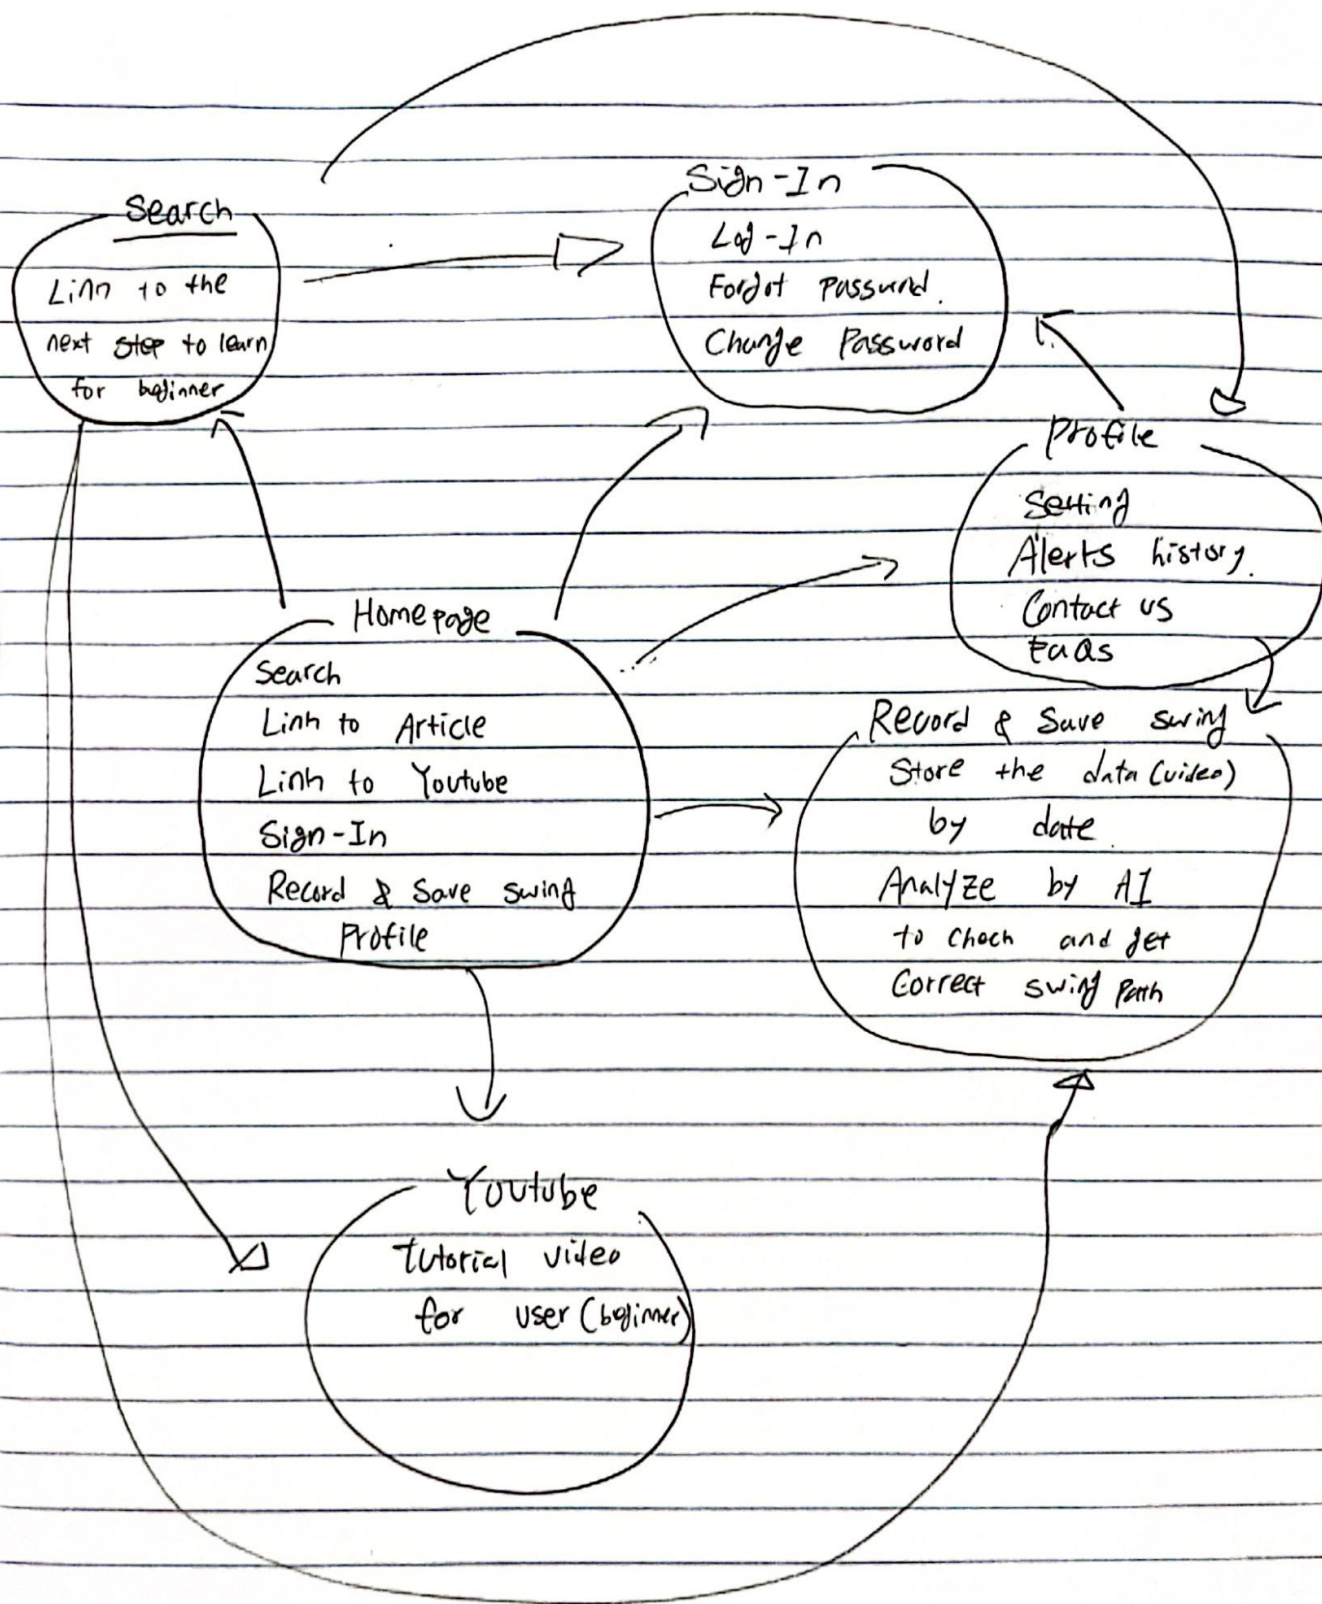 Search
Link to the
next step to learn
for beginner
Sign-In
Log-In
Forgot Password.
Change Password
Profile
Setting
Alerts history.
Contact us
FaQs
Homepage
Search
Link to Article
Link to Youtube
Sign-In
Record & Save swing
Profile
Record & Save swing
Store the data (video)
by date
Analyze by AI
to check and get
Correct swing Path
Youtube
tutorial video
for user (beginner)